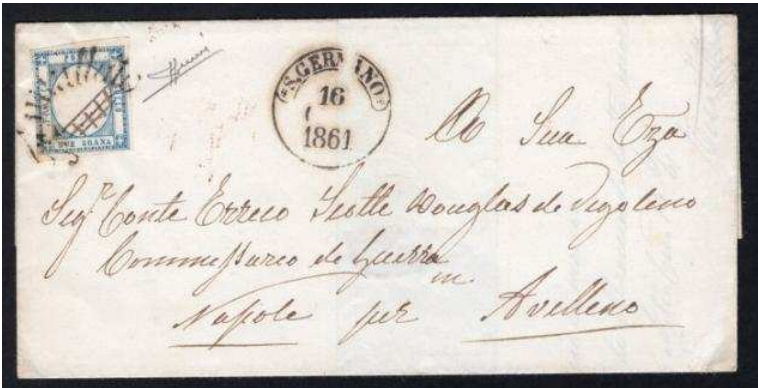 S. GERMANO
16
1861
A Sua Eza
Sigr Conte Errico Scotte Douglas de Vigoleno
Commessareo de Guerra
in
Napole per Avelleno